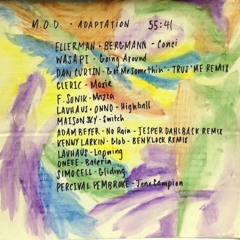 M.O.D. - ADAPTATION 55:41
ELLERMAN - BERGMANN - Conei
WASAPI - Going Around
DAN CURTIN - Got Me Somethin' - TRUS'ME REMIX
CLERIC - Maxie
F. SONIK - Mazca
LAUHAUS + ONNO - Highball
MATSON SKY - Switch
ADAM BEYER - No Rain - JESPER DAHLBACK REMIX
KENNY LARKIN - Glob - BEN KLOCK REMIX
LAUHAUS - Lapwing
ONEEE - Baleria
SIMOCELL - Gliding
PERCIVAL PEMBROKE - Jane Campion